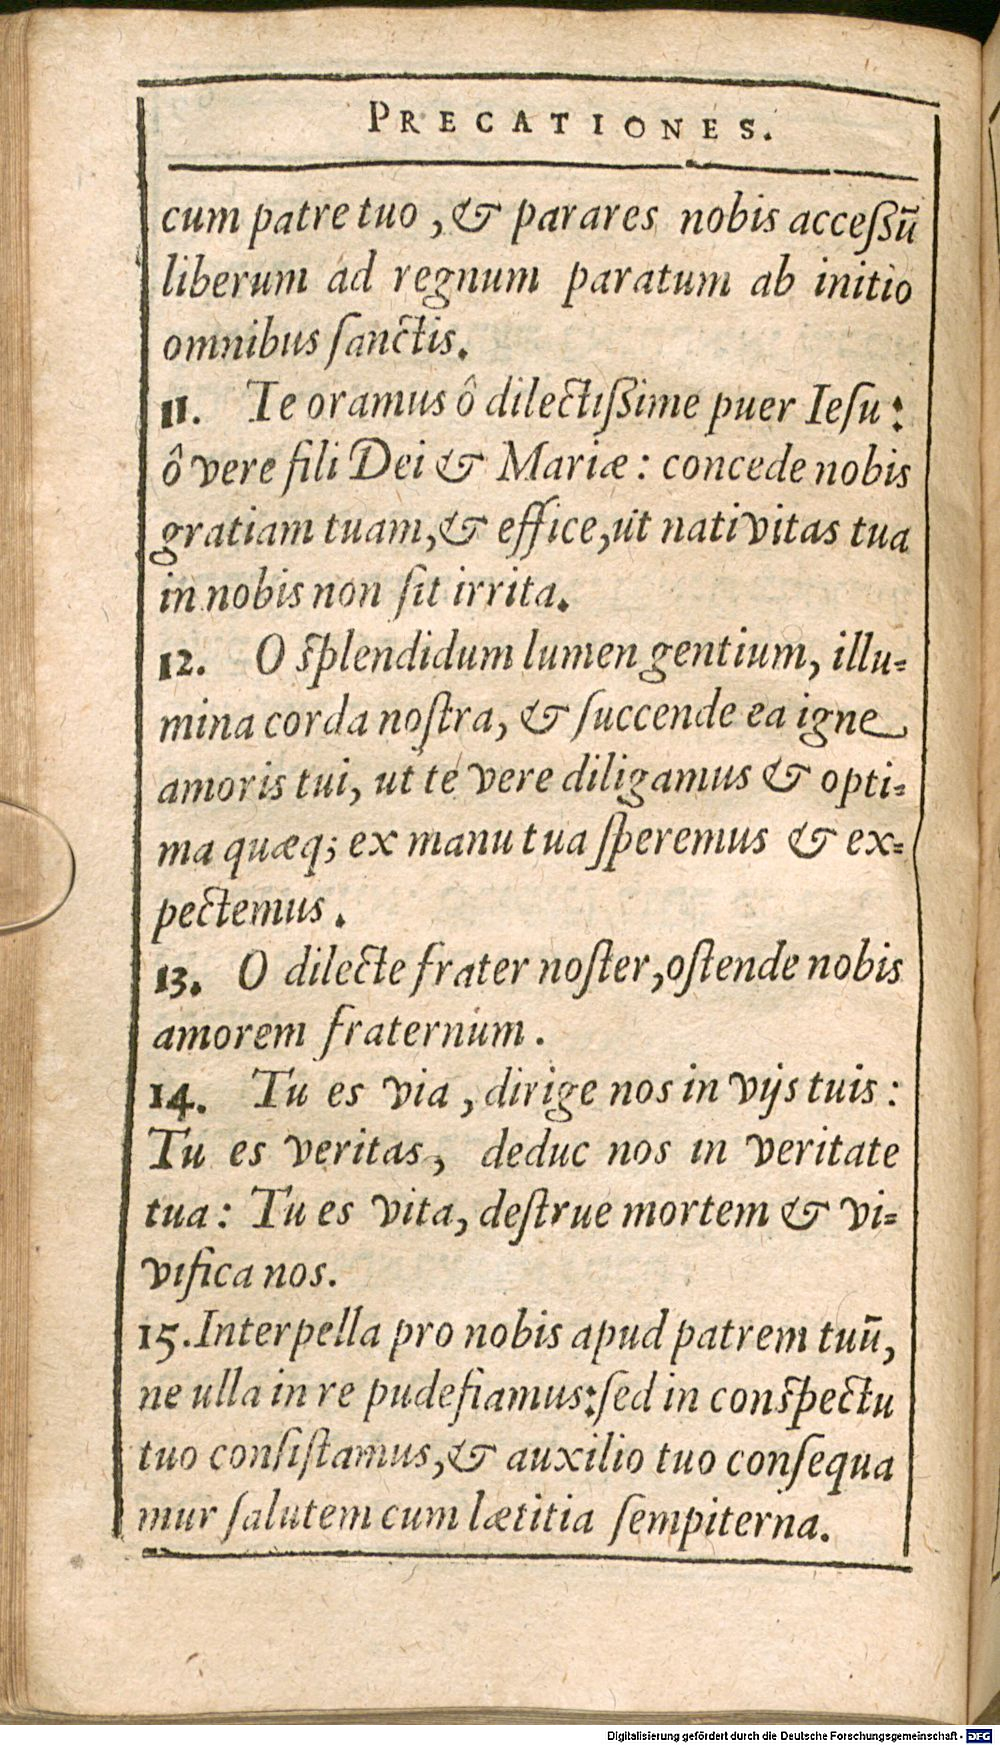 PRECATIONES.
cum patre tuo, & parares nobis acceſſū
liberum ad regnum paratum ab initio
omnibus ſanctis.
11. Te oramus ô dilectiſſime puer Ieſu:
ô vere fili Dei & Mariæ: concede nobis
gratiam tuam, & effice, ut nativitas tua
in nobis non ſit irrita.
12. O ſplendidum lumen gentium, illu-
mina corda noſtra, & ſuccende ea igne
amoris tui, ut te vere diligamus & opti-
ma quæq; ex manu tua ſperemus & ex-
pectemus.
13. O dilecte frater noſter, oſtende nobis
amorem fraternum.
14. Tu es via, dirige nos in vijs tuis:
Tu es veritas, deduc nos in veritate
tua: Tu es vita, deſtrue mortem & vi-
vifica nos.
15. Interpella pro nobis apud patrem tuū,
ne ulla in re pudefiamus: ſed in conſpectu
tuo conſiſtamus, & auxilio tuo conſequa
mur ſalutem cum lætitia ſempiterna.
Digitalisierung gefördert durch die Deutsche Forschungsgemeinschaft - DFG